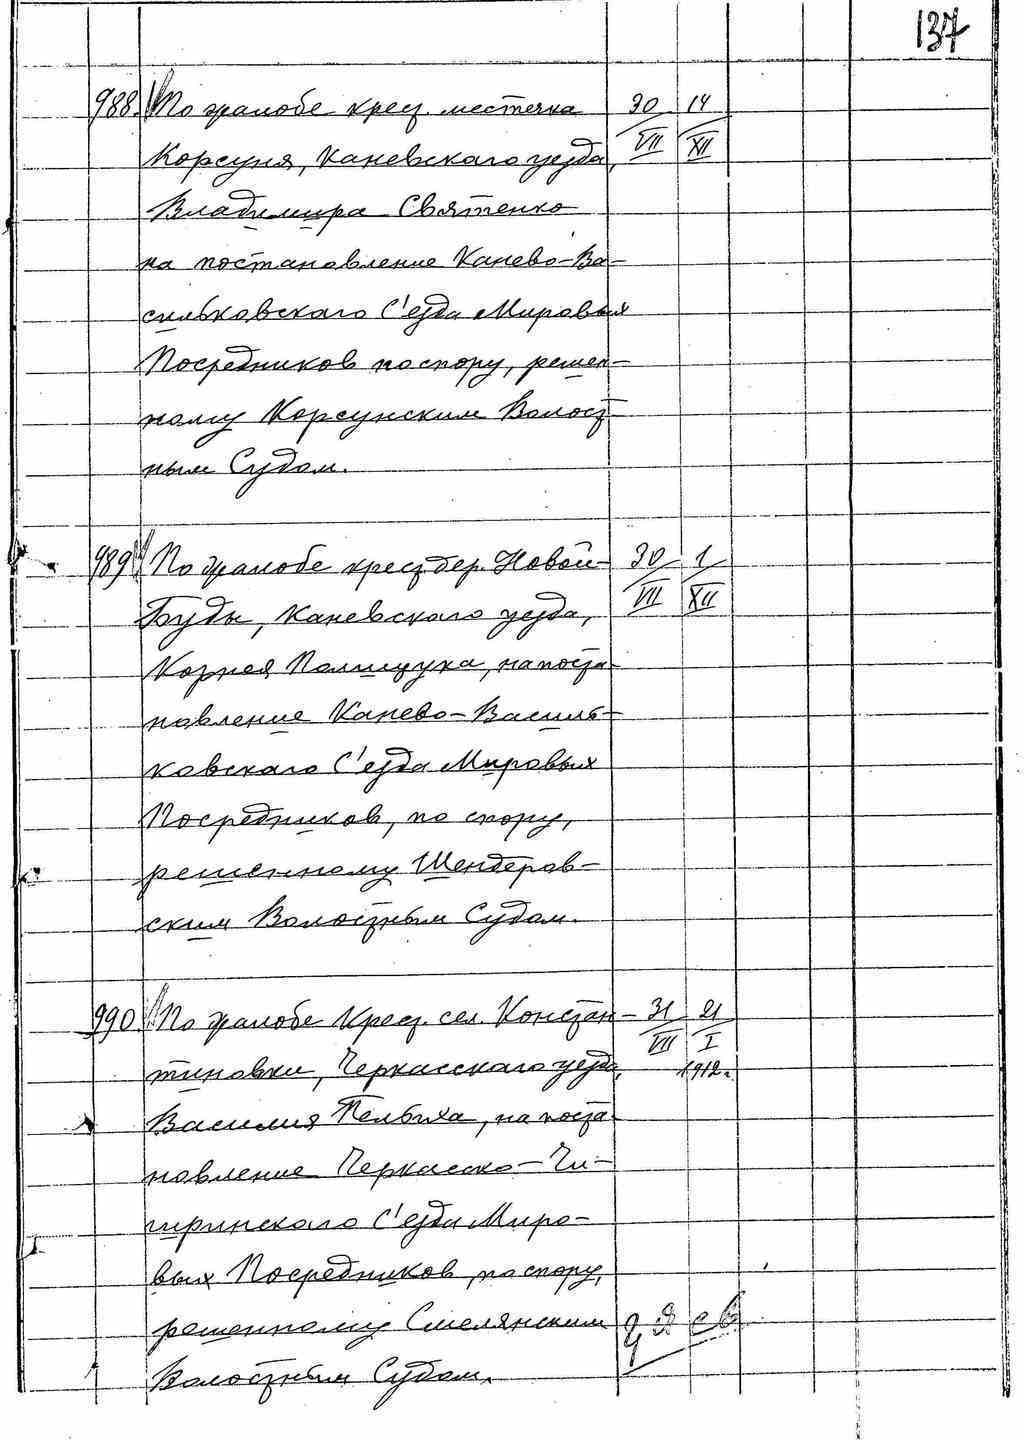 137
988. По жалобе крест. местечка 30/VII 14/XII
Корсуня, Каневскаго уезда,
Владимира Святенко
на постановление Канево-Ва-
сильковскаго С'езда Мировых
Посредников по спору, решен-
ному Корсунским Волост-
ным Судом.
989 По жалобе крест. дер. Новой- 30/VII 1/XII
Буды, Каневскаго уезда,
Корнея Полищука, на поста-
новление Канево-Василь-
ковскаго С'езда Мировых
Посредников, по спору,
решенному Шендеров-
ским Волостным Судом.
990. По жалобе Крест. сел. Констан- 31/VII 21/I
тиновки, Черкасскаго уезда, 1912 г.
Василия, на поста-
новление Черкасско-Чи-
гиринскаго С'езда Миро-
вых Посредников, по спору,
решенному Смелянским
Волостным Судом.